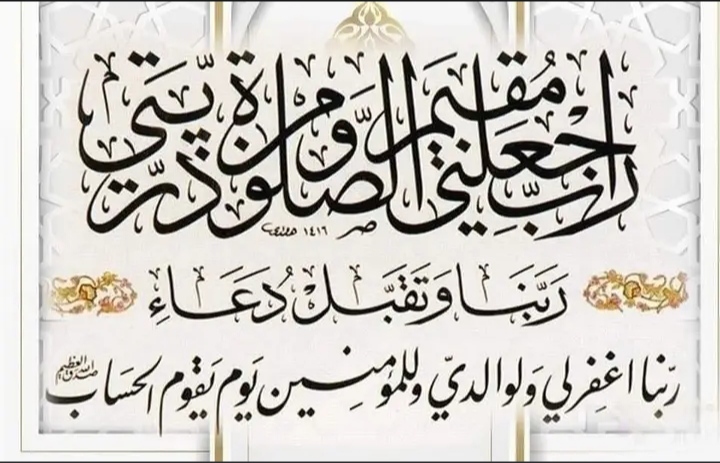 رَبِّ اجْعَلْنِي مُقِيمَ الصَّلوٰةِ وَمِن ذُرِّيَّتِي
١٤١٦
رَبَّنَا وَتَقَبَّلْ دُعَاءِ
ربّنا اغفِرلي وَلوالديّ وللمؤمِنِين يَوم يَقوم الحِسَاب
صدق الله العظيم